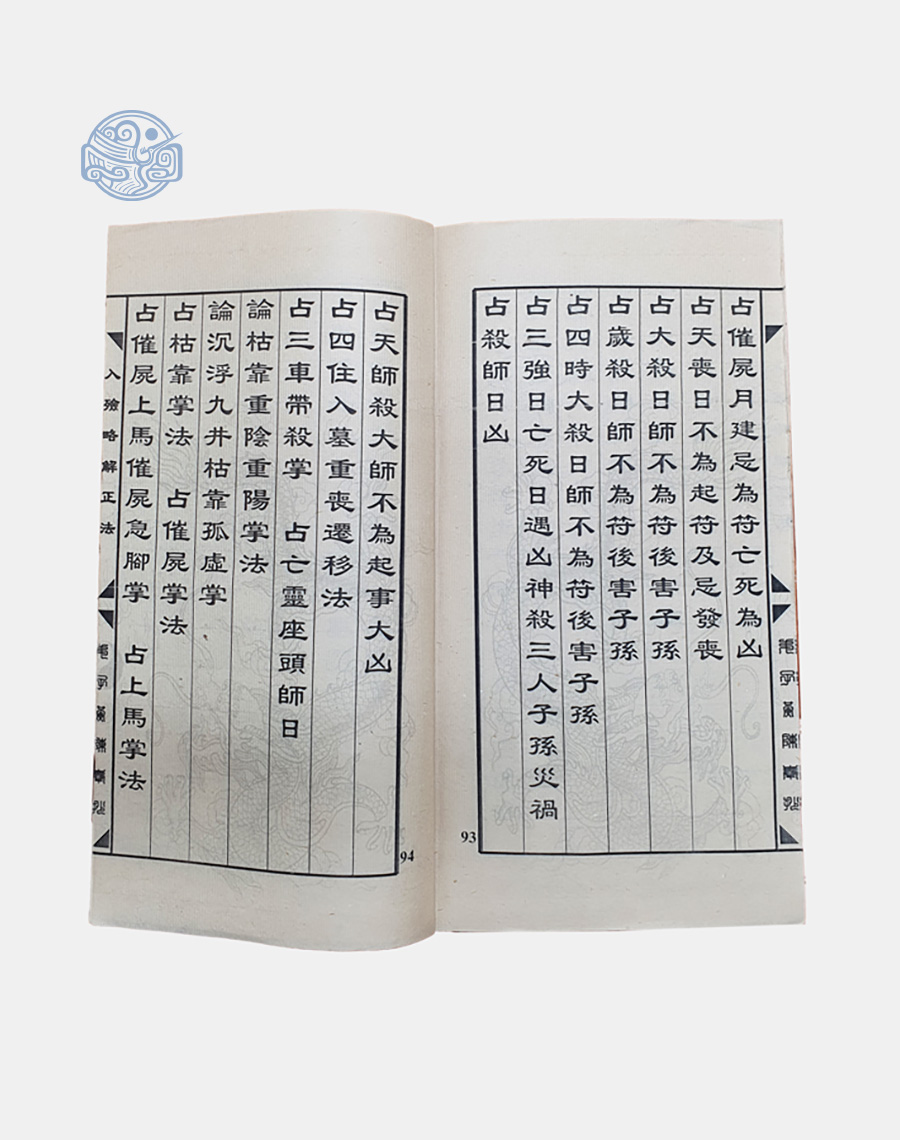 占催屍月建忌為符亡死為凶
占天喪日不為起符及忌發喪
占大殺日師不為符後害子孫
占歲殺日師不為符後害子孫
占四時大殺日師不為符後害子孫
占三強日亡死日遇凶神殺三人子孫災禍
占殺師日凶
93
占天師殺大師不為起事大凶
占四住入墓重喪遷移法
占三車帶殺掌 占亡靈座頭師日
論枯靠重陰重陽掌法
論沉浮九井枯靠孤虛掌
占枯靠掌法 占催屍掌法
占催屍上馬催屍急腳掌 占上馬掌法
入殮略解正法
94